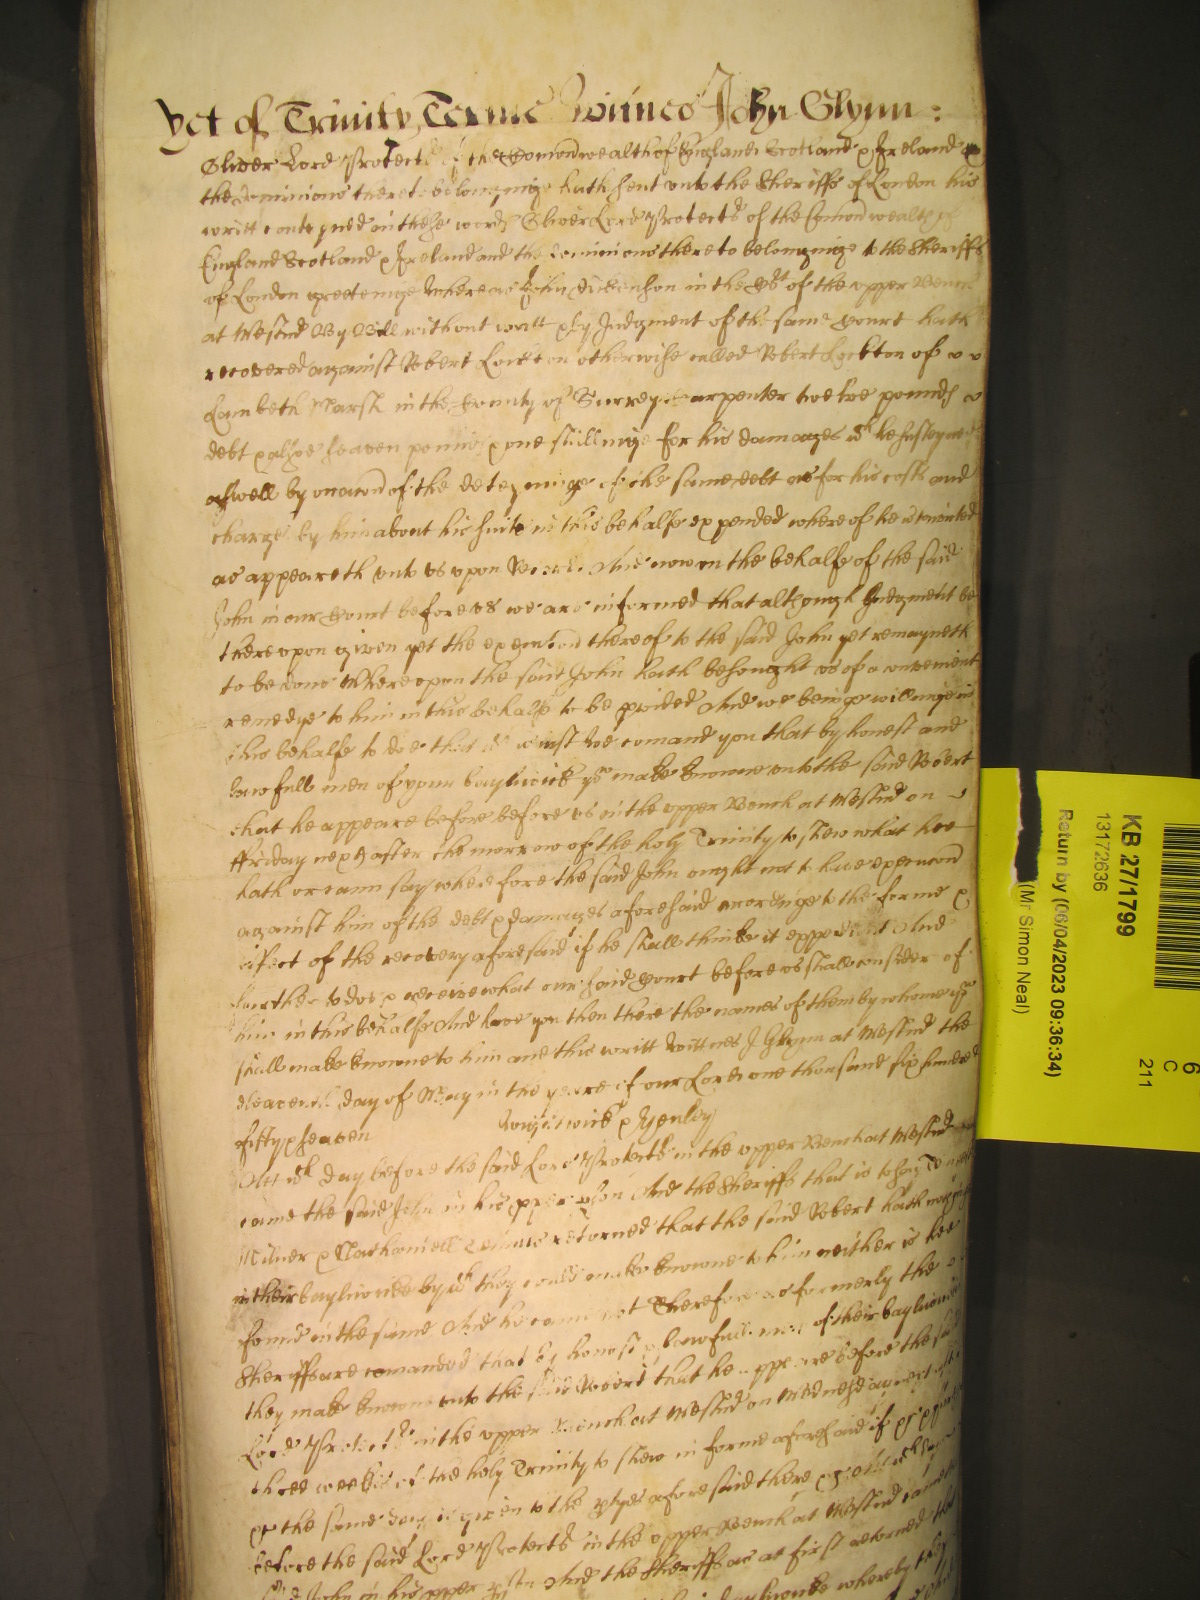 Yet of Trinity Terme Wittnes John Glynn :
Oliver Lord Protector of the Comonwealth of England Scotland & Ireland &
the dominions thereto belonginge hath sent unto the Sheriffs of London his
writt conteyned in these words Oliver Lord Protector of the Comonwealth of
England Scotland & Ireland and the dominions thereto belonginge to the Sheriffs
of London greetinge Whereas John Dickenson in the Cort of the upper Bench
at Westmr By Bill without writt & by Judgment of the same Court hath
recovered against Robert Lockton otherwise called Robert Lockton of
Lambeth Marsh in the County of Surrey Carpenter twelve pounds
debt & alsoe seaven pounds & one shillinge for his damages wch he susteyned
aswell by occacon of the deteyninge of the same debt as for his costs and
charges by him about his suite in this behalfe expended whereof he is convicted
as appeareth unto us upon Record And now on the behalfe of the said
John in our Court before us we are informed that although Judgment be
thereupon given yet the execucon thereof to the said John yet remayneth
to be done Whereupon the said John hath besought us of a convenient
remedye to him in this behalfe to be pvided And we beinge willinge in
this behalfe to doe that wch is just doe comand you that by honest and
lawfull men of your bayliwick you make knowne unto the said Robert
that he appeare before before us in the upper Bench at Westmr on
ffriday next after the morrow of the holy Trinity to shew what hee
hath or cann say wherefore the said John ought not to have execucon
against him of the debt & damages aforesaid accordinge to the forme &
effect of the recovery aforesaid if he shall thinke it expedient And
further to doe & receive what our said Court before us shall consider of
him in this behalfe And have you then there the names of them by whome you
shall make knowne to him and this writt Wittnes J Glynn at Westmr the
eleaventh day of May in the yeare of our Lord one thousand six hundred
fifty & seaven & Henley
Att wch day before the said Lord Protector in the upper Bench at Westmr
came the said John in his pper pson And the Sheriffs that is to say
Milner & Nathaniell Temms returned that the said Robert hath nothinge
in their bayliwicke by wch they could make knowne to him neither is hee
found in the same And he came not Therefore as formerly the
Sheriffs are comanded that by honest & lawfull men of their bayliwicke
they make knowne unto the said Robert that he appeare before the said
Lord Protector in the upper Bench at Westmr on Wednesday next after
three weekes of the holy Trinity to shew in forme aforesaid if &c
&c the same day is given to the ptyes aforesaid there &c Att wch day
before the said Lord Protector in the upper Bench at Westmr came the
said John in his pper pson And the Sheriffs as at first returned that
bayliwicke whereby they
KB 27/1799
13172636
Return by (06/04/2023 09:36:34)
(Mr Simon Neal)
6
C
211